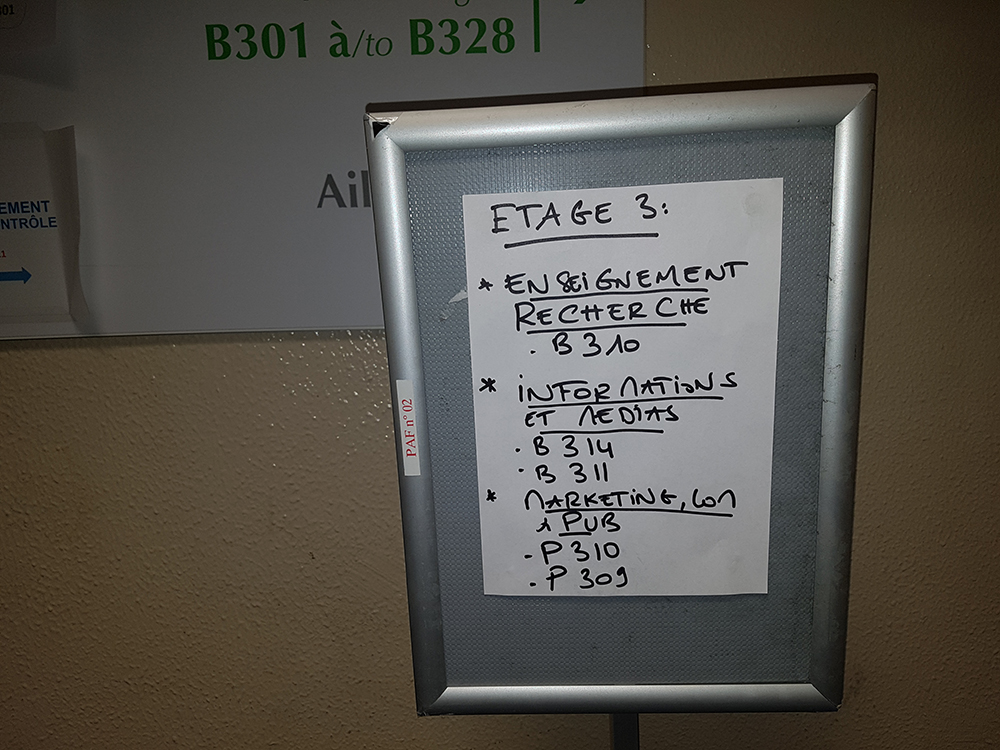 B301 à/to B328
Ail
EMENT
NTRÔLE
PAF n° 02
ETAGE 3:
* ENSEIGNEMENT
RECHERCHE
. B 310
* INFORMATIONS
ET MEDIAS
. B 314
. B 311
* MARKETING, COM
& PUB
- P 310
- P 309